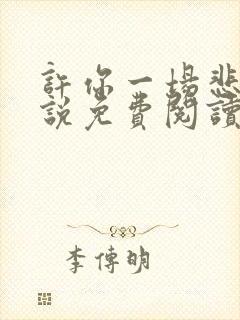 許你一場悲
說免費閱讀
李傳明